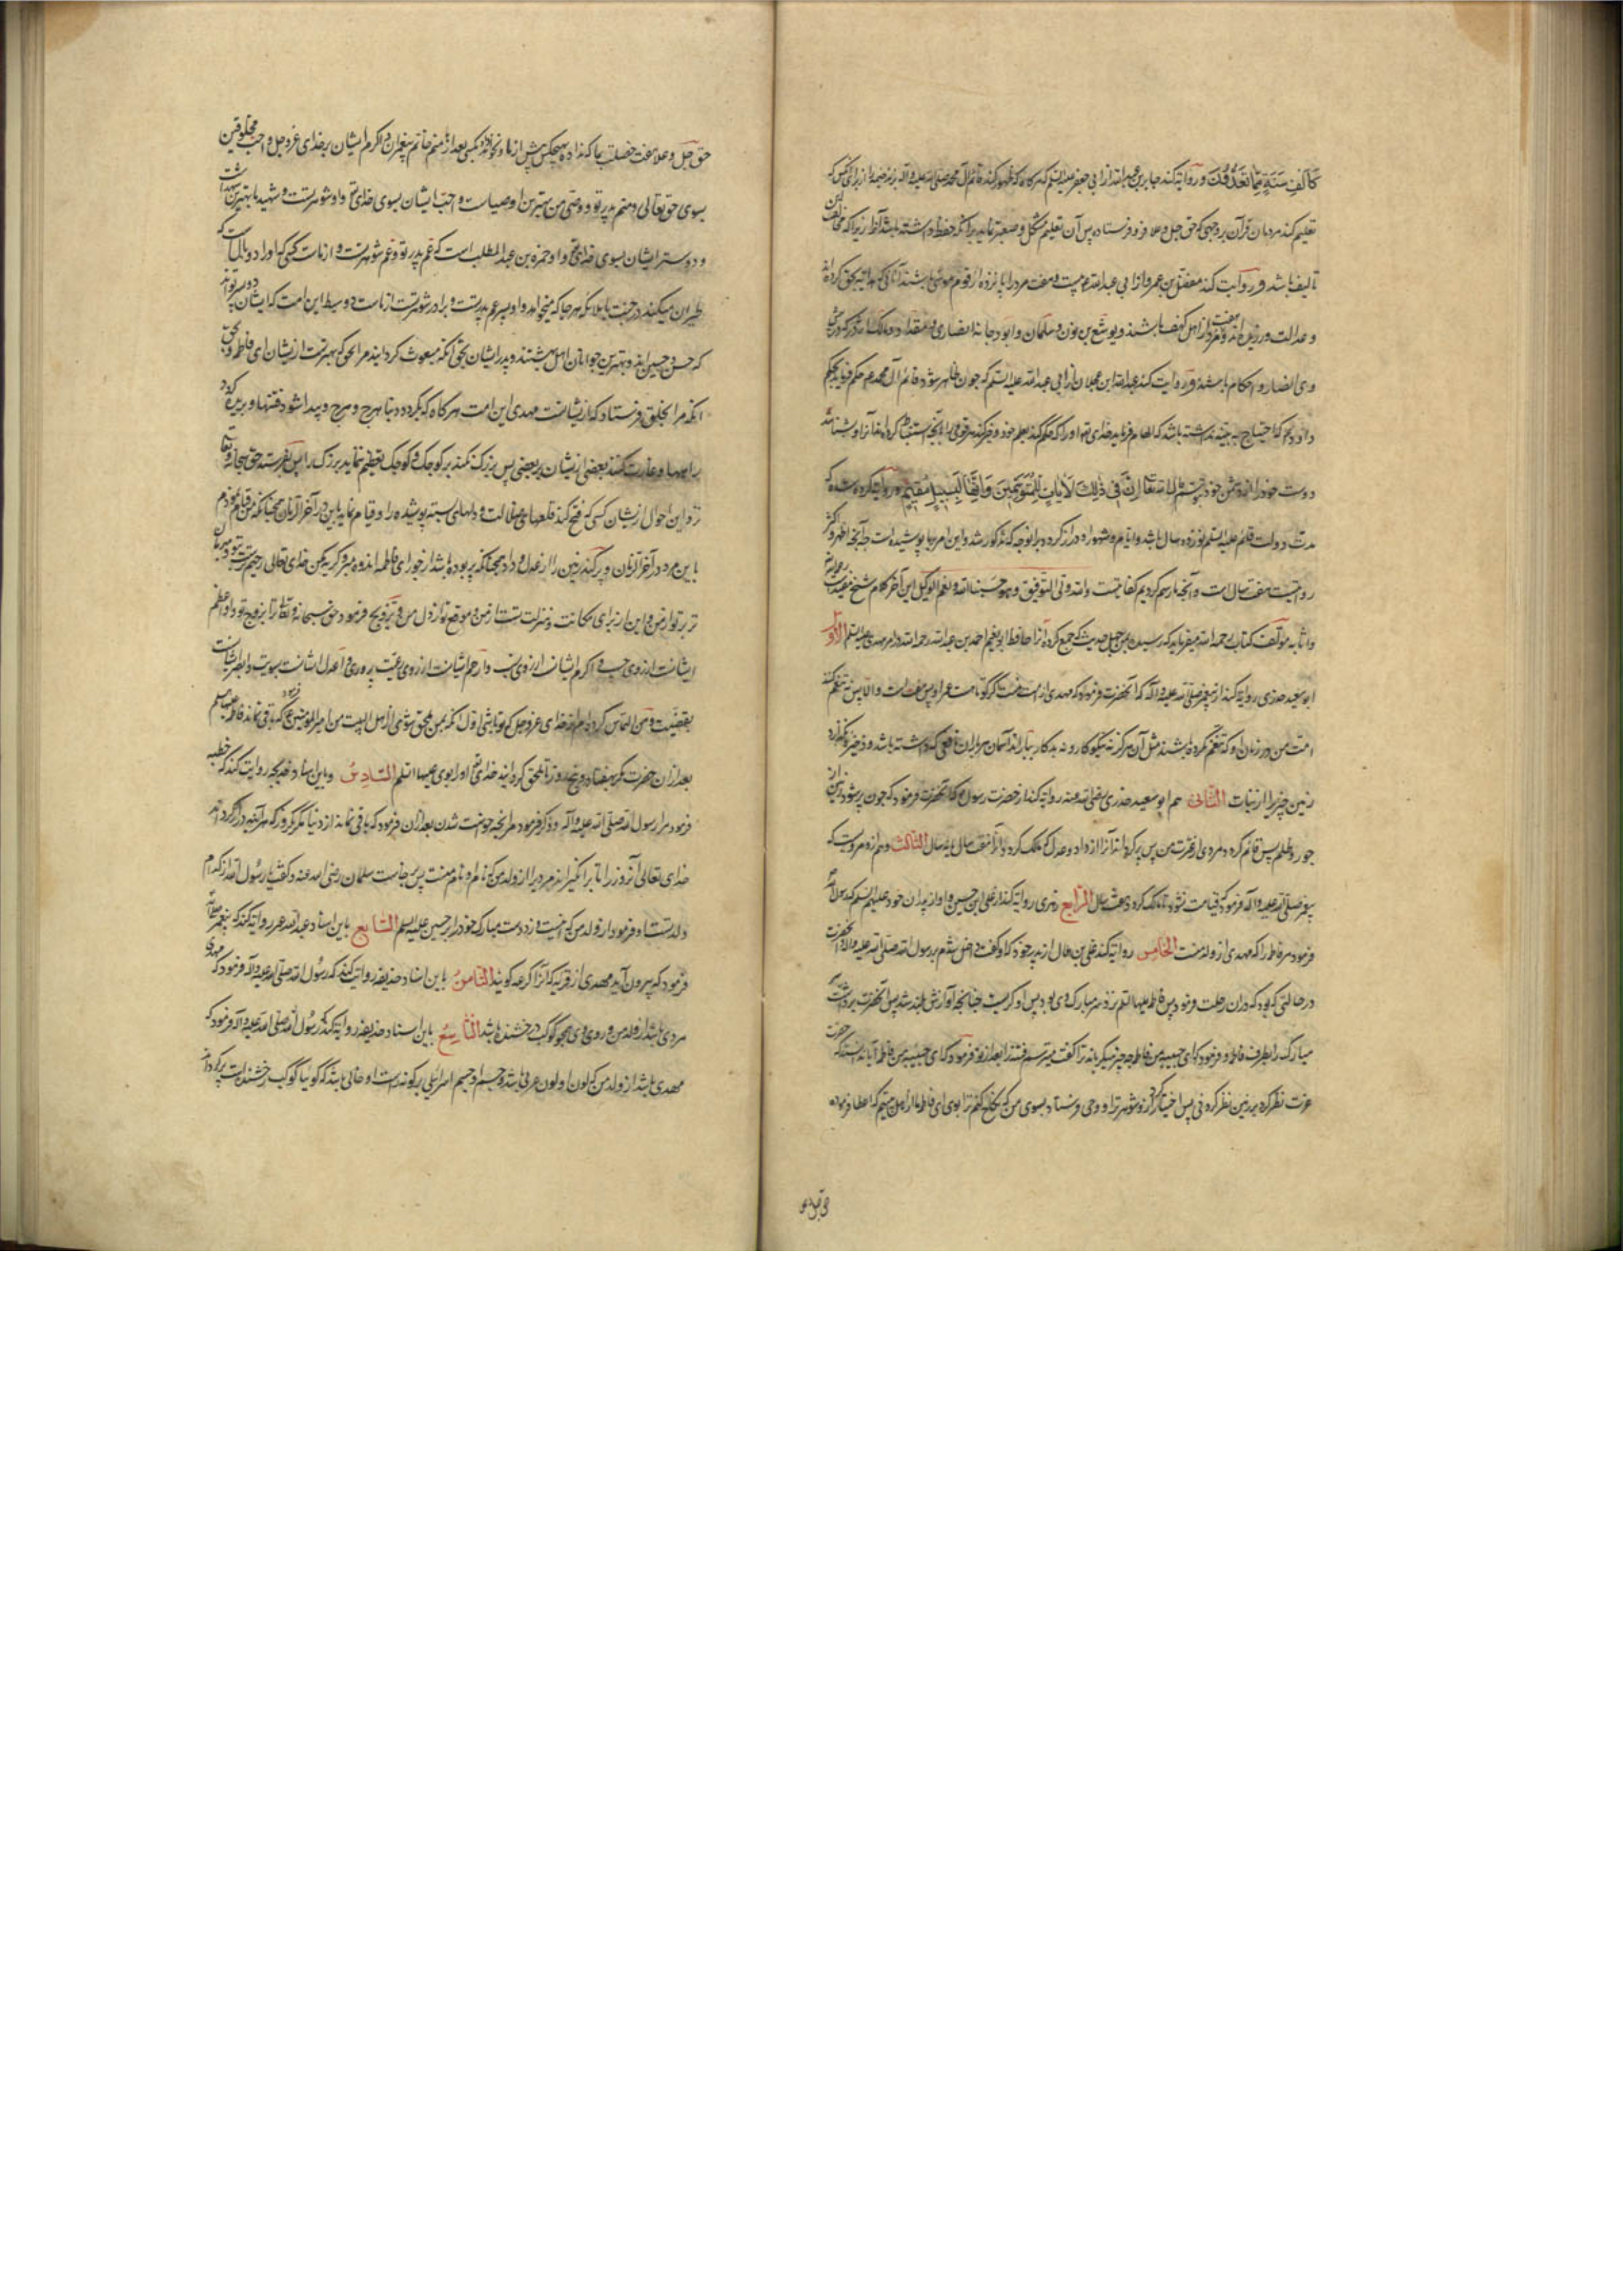 كَأَلْفِ سَنَةٍ مِمَّا تَعُدُّونَ و روایة کند جابر بن عبدالله از ابی جعفر علیه السلم که هرکاه که ظهور کند قائم آل محمد صلی الله علیه و آله بزند خیمها از برای کسی که
تعلیم کند مردمان قرآن بر وجهی که حق جل و علا فرو فرستاده پس آن تعلیم مشکل و صعبتر نماید بر آنکه حفظ داشته باشد آنرا زیرا که مخالف این
تالیف باشد و روایت کند مفضل بن عمر از ابی عبدالله که بیست و هفت مرد را پانزده از قوم موسی باشند آنانکه هدایة بحق کرده اند
و عدالت ورزیده اند و هفت مرد از اهل کهف باشند و یوشع بن نون و سلمان و ابودجانه انصاری و مقداد و مالک اشتر که در پیش
وی انصار و احکام باشند و روایت کند عبدالله ابن عجلان از ابی عبدالله علیه السلم که چون ظاهر شود قائم آل محمد حکم فرماید بحکم
داود که احتیاج به بینه نداشته باشد که الهام فرماید خدای تعالی او را که حکم کند بعلم خود و خبر کند هر قومی را بآنچه استنباط کرده اند آنرا و شناسد
دوست خود را از دشمن خود بتوسم قال الله تعالی إِنَّ فِي ذَلِكَ لَآيَاتٍ لِلْمُتَوَسِّمِينَ وَإِنَّهَا لَبِسَبِيلٍ مُقِيمٍ و روایة کرده شده که
مدت دولت قائم علیه السلم نوزده سال باشد و ایام و شهور او دراز کردد بر آنوجه که مذکور شد و این امر بما پوشیده است چه آنچه اظهر و اکثر
روایتست هفت سال است و آنچه ما رسم کردیم کفایتست والله ولی التوفیق و هو حسبنا الله و نعم الوکیل این آخر کلام شیخ مفید است رحمه الله
مؤلف کتاب رحمه الله میفرماید که رسیده بمن چهل حدیث که جمع کرده آنرا حافظ ابونعیم احمد بن عبدالله رحمه الله در امر مهدی علیه السلم الاول
ابوسعید خدری روایة کند از پیغمبر صلی الله علیه و آله که آنحضرت فرمود که مهدی از امت منست اکر کوتاه است عمر او پس هفت است والا پس نه تنعم کنند
امت من در زمان او که تنعم نکرده باشند مثل آن هرکز نه نیکوکار و نه بدکار بباراند آسمان بر ایشان باران نافعی که داشته باشد و ذخیره نکذارد
زمین چیزی را از نبات الثانی هم ابوسعید خدری رضی الله عنه روایة کند از حضرت رسول که آنحضرت فرمود که چون پر شود زمین از
جور و ظلم پس قائم کردد مردی از عترت من پس پر کرداند آنرا از داد و عدل که مالک کردد آنرا هفت سال یا نه سال الثالث و هم ازو مرویست که
پیغمبر صلی الله علیه و آله فرمود که قیامت نشود تا مالک کردد هفت سال الرابع زهری روایة کند از علی ابن حسین و او از پدران خود علیهم السلم که رسول الله
فرمود مر فاطمه را که مهدی از ولد منست الخامس روایة کند علی بن هلال از پدر خود که او کفت داخل شدم بر رسول الله صلی الله علیه و آله آنحضرت
در حالتی که بود که در آن رحلت فرمود پس فاطمه علیها السلم نزد سر مبارک وی بود پس او کریست چنانچه آوازش بلند شد پس آنحضرت سر
مبارک را بطرف فاطمه و فرمود که ای حبیبه من فاطمه چه چیز میکریاند ترا کفت میترسم فتنه را بعد از تو فرمود که ای حبیبه من فاطمه آیا ندانسته که حضرت
عزت نظر کرد بر زمین نظر کردنی پس اختیار کرد ازو شوهر ترا و وحی فرستاد بسوی من که نکاح کنم ترا بوی ای فاطمه ما از اهل بیتیم که اعطا فرموده
حق جل و علا هفت خصلت بما که نداده بهیچکس پیش از ما و نخواهد داد بکسی بعد از ما منم خاتم پیغمبران و اکرم ایشان بر خدای عز و جل و احب مخلوقین
بسوی حق تعالی و منم پدر تو و وصی من بهترین اوصیاست و احب ایشان بسوی خدای تعالی و او شوهر تست و شهید ما بهترین شهداست
و دوستر ایشان بسوی خدای تعالی و او حمزه بن عبدالمطلب است که عم پدر تو و عم شوهر تست و از ماست کسی که او را دو بالست که
طیران میکند در جنت با ملائکه هرجا که میخواهد و او پسر عم پدر تست و برادر شوهر تست و از ماست دو سبط این امت که ایشان پسران تواند
که حسن و حسین اند و بهترین جوانان اهل بهشتند و پدر ایشان بحق آنکه مبعوث کردانید مرا بحق که بهترست از ایشان ای فاطمه و بحق
آنکه مرا بخلق فرستاد که از ایشانست مهدی این امت هرکاه که بکردد دنیا هرج و مرج و پیدا شود فتنها و بریده کردد
راهها و غارت کنند بعضی از ایشان بر بعضی پس بزرک نکند بر کوچک و کوچک تعظیم ننماید بزرک را پس بفرستد حق سبحانه و تعالی
نزد این احوال از ایشان کسی که فتح کند قلعهای ضلالت و دلهای بسته پوشیده را و قیام نماید باین در آخر الزمان همچنانکه من قیام نمودم
باین مرد در آخر الزمان و پر کند زمین را از عدل و داد همچنانکه پر بوده باشد از جور ای فاطمه اندوه مبر و کریه مکن خدای تعالی رحیم ترست بتو و مهربان
تر بر تو از من و این از برای مکانت و منزلت تست از من و موقع تو از دل من و تزویج فرمود حق سبحانه و تعالی ترا بزوج تو و او اعظم
ایشانست از روی حسب و اکرم ایشان از روی نسب و ارحم ایشانست از روی رعیت پروری و اعدل ایشانست بسویت و ابصر ایشانست
بقضیت و من التماس کرده ام از خدای عز و جل که تو باشی اول آنکه بمن ملحق شوی از اهل البیت من امیر المؤمنین فرمود که باقی نماند فاطمه علیها السلم
بعد از آن حضرت مکر هفتاد و پنج روز تا ملحق کردانید خدای تعالی او را بوی علیهما السلم السادس و باین اسناد حذیفه روایت کند که خطبه
فرمود ما را رسول الله صلی الله علیه و آله و ذکر فرمود مر آنچه خواست شدن بعد از آن فرمود که باقی نماند از دنیا مکر یکروز که هر آینه دراز کرداند
خدای تعالی آنروز را تا برانکیزاند مردی را از ولد من که نام او نام منست پس برخاست سلمان رضی الله عنه و کفت یا رسول الله از کدام
ولد تست او فرمود از ولد من که اینست و زد دست مبارک خود را بر حسین علیه السلم السابع باین اسناد عبدالله عمر روایة کند که پیغمبر صلی الله
فرمود که بیرون آید مهدی از قریه که آنرا کرعه کویند الثامن باین اسناد حذیفه روایت کند که رسول الله صلی الله علیه و آله فرمود که مهدی
مردی باشد از ولد من و روی وی همچو کوکب درخشنده باشد التاسع باین اسناد حذیفه روایة کند که رسول الله صلی الله علیه و آله فرمود که
مهدی باشد از ولد من که لون او لون عربی باشد و جسم او جسم اسرائیلی بر کونه راست او خالی باشد که کوئیا کوکب درخشنده است پر کرداند